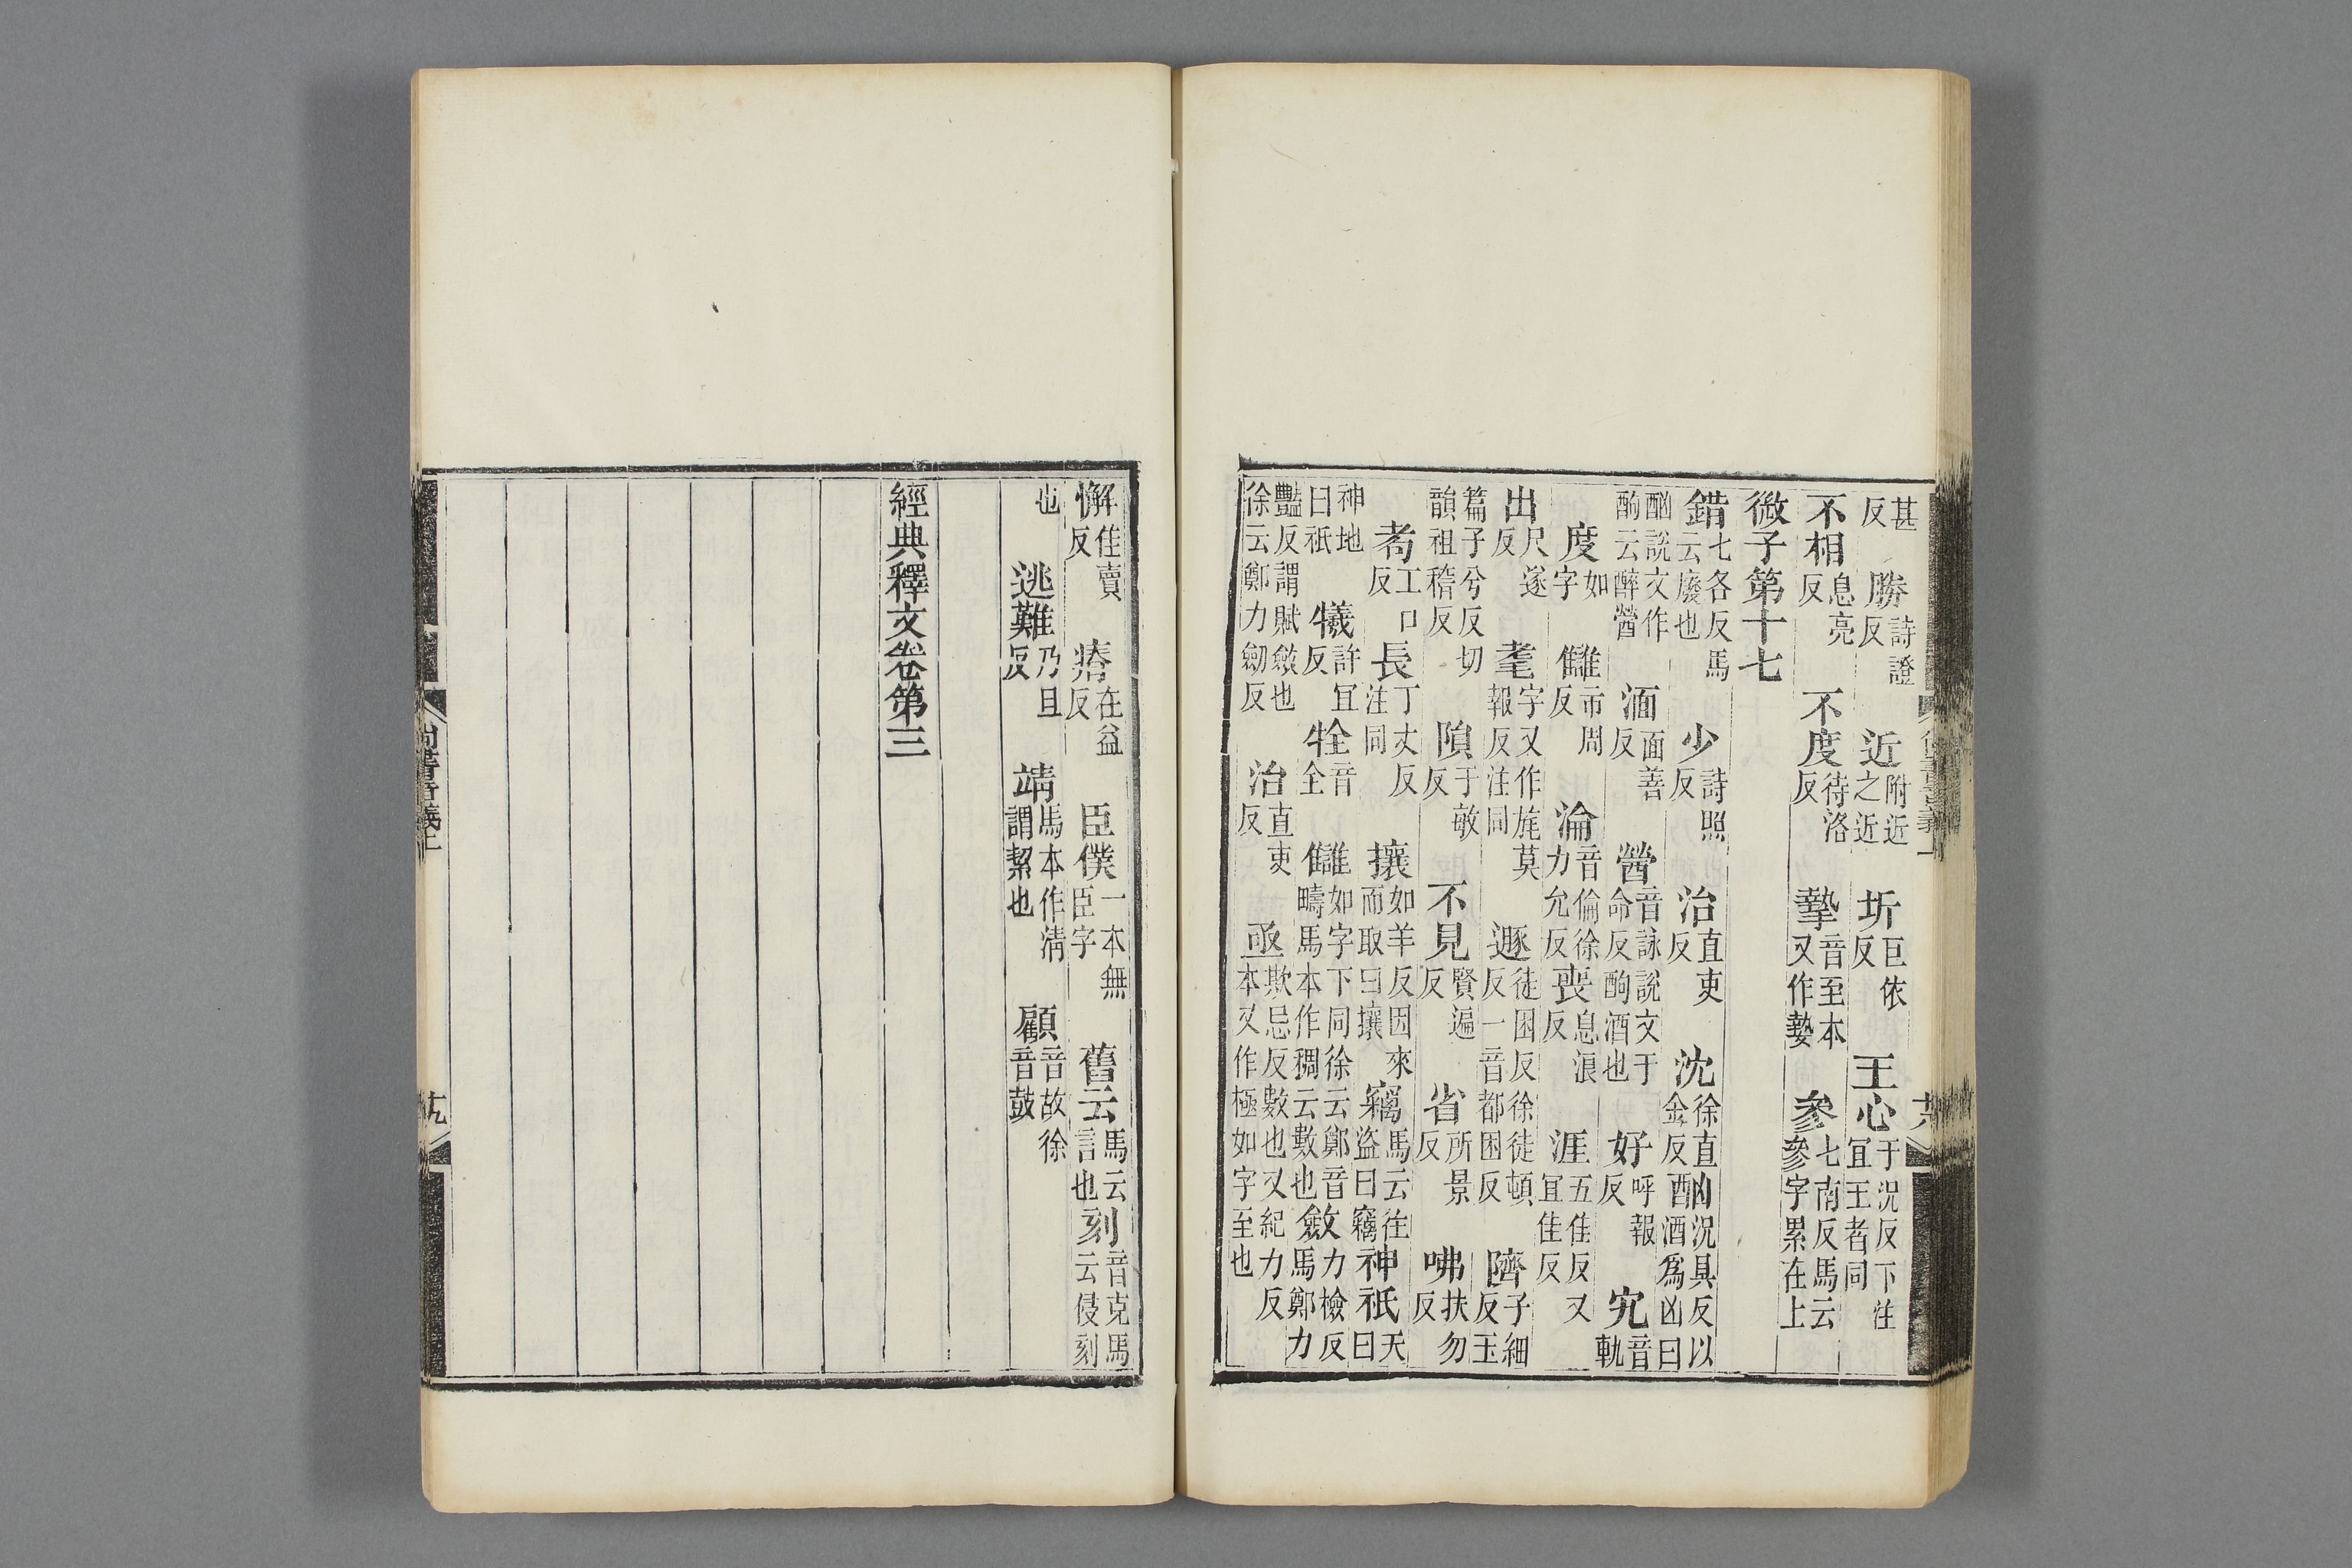 甚反　勝詩證反　近附近之近　圻巨依反　王心于況反下注宜王者同
不相息亮反　不度待洛反　摯音至本又作𡠗　參七南反馬云參字累在上
微子第十七
錯七各反馬云廢也　少詩照反　治直吏反　沈徐直金反酗況具反以酒爲凶曰
酗說文作酌云醉醟　湎面善反　醟音詠說文于命反酌酒也　好呼報反　宄音軌
度如字　讎市周反　淪音倫徐力允反喪息浪反　涯五佳反又宜佳反
出尺遂反　耄字又作旄莫報反注同　遯徒困反徐徒頓反一音都困反　隮子細反玉
篇子兮反切韻祖稽反　隕于敏反　不見賢遍反　省所景反　咈扶勿反
耇工口反　長丁丈反注同　攘如羊反因來而取曰攘　竊馬云往盜曰竊神祇天曰
神地曰祇　犧許宜反　牷音全　讎如字下同徐云鄭音疇馬本作稠云數也斂力檢反馬鄭力
豔反謂賦斂也徐云鄭力劒反　治直吏反　亟欺忌反數也又紀力反本又作極如字至也
懈佳賣反　瘠在益反　臣僕一本無臣字　舊云馬云言也刻音克馬云侵刻
也　逃難乃旦反　靖馬本作淸謂絜也　顧音故徐音鼓
經典釋文卷第三
尚書音義上